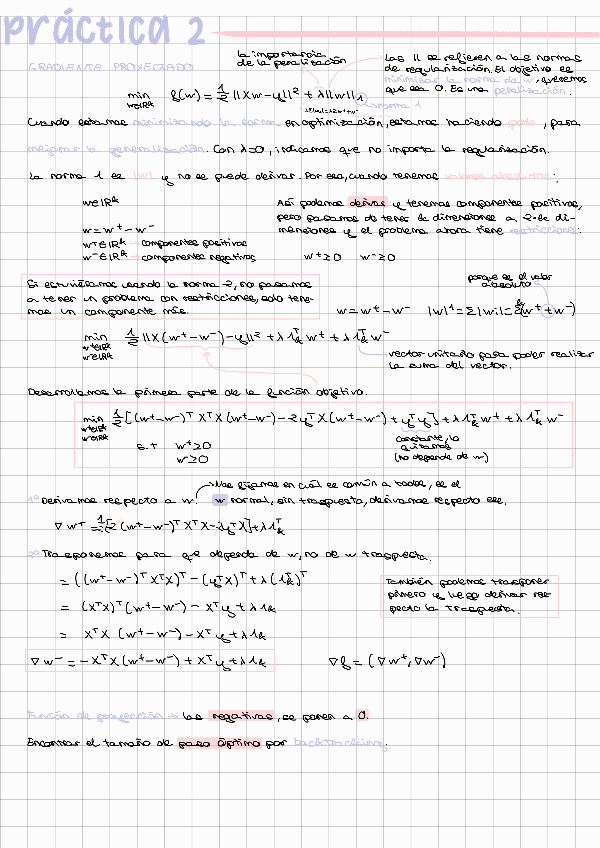 práctica 2
GRADIENTE PROYECTADO
la importancia
de la penalización
Las || se refieren a las normas
de regularización. El objetivo es
minimizar la norma de w, queremos
que sea 0. Es una penalización.
min f(w) = 1/2 ||Xw-y||² + λ||w||₁
w∈ℝᵏ
norma 1
Cuando estamos minimizando la norma en optimización, estamos haciendo poda, para
mejorar la generalización. Con λ=0, indicamos que no importa la regularización.
La norma 1 es |w| y no se puede derivar. Por eso, cuando tenemos valores absolutos:
w∈ℝᵏ
w = w⁺ - w⁻
w⁺∈ℝᵏ → componentes positivas
w⁻∈ℝᵏ → componentes negativas
Así podemos derivar y tenemos componentes positivas,
pero pasamos de tener k dimensiones a 2·k di-
mensiones y el problema ahora tiene restricciones:
w⁺≥0 w⁻≥0
Si estuviéramos usando la norma 2, no pasamos
a tener un problema con restricciones, solo tene-
mos un componente más.
porque es el valor
absoluto
w = w⁺ - w⁻ |w|¹ = Σ|wi| = Σ(w⁺ + w⁻)
min 1/2 ||X(w⁺-w⁻)-y||² + λ1ₖᵀw⁺ + λ1ₖᵀw⁻
w⁺∈ℝᵏ
w⁻∈ℝᵏ
vector unitario para poder realizar
la suma del vector.
Desarrollamos la primera parte de la función objetivo.
min 1/2 [(w⁺-w⁻)ᵀXᵀX(w⁺-w⁻) - 2yᵀX(w⁺-w⁻) + yᵀy] + λ1ₖᵀw⁺ + λ1ₖᵀw⁻
w⁺∈ℝᵏ
w⁻∈ℝᵏ
s.t w⁺≥0
w≥0
constante, la
quitamos
(no depende de w)
Nos fijamos en cuál es común a todos, es el
1º Derivamos respecto a w. w normal, sin traspuesta, derivamos respecto ese.
∇w⁺ = 1/2 [2(w⁺-w⁻)ᵀXᵀX - 2yᵀX] + λ1ₖᵀ
2º Trasponemos para que dependa de w, no de w traspuesta.
= ((w⁺-w⁻)ᵀXᵀX)ᵀ - (yᵀX)ᵀ + λ(1ₖᵀ)ᵀ
= (XᵀX)ᵀ(w⁺-w⁻) - Xᵀy + λ1ₖ
= XᵀX (w⁺-w⁻) - Xᵀy + λ1ₖ
También podemos trasponer
primero y luego derivar res-
pecto la traspuesta.
∇w⁻ = -XᵀX(w⁺-w⁻) + Xᵀy + λ1ₖ ∇f = (∇w⁺, ∇w⁻)
Función de proyección → las negativas, se ponen a 0.
Encontrar el tamaño de paso óptimo por backtracking.